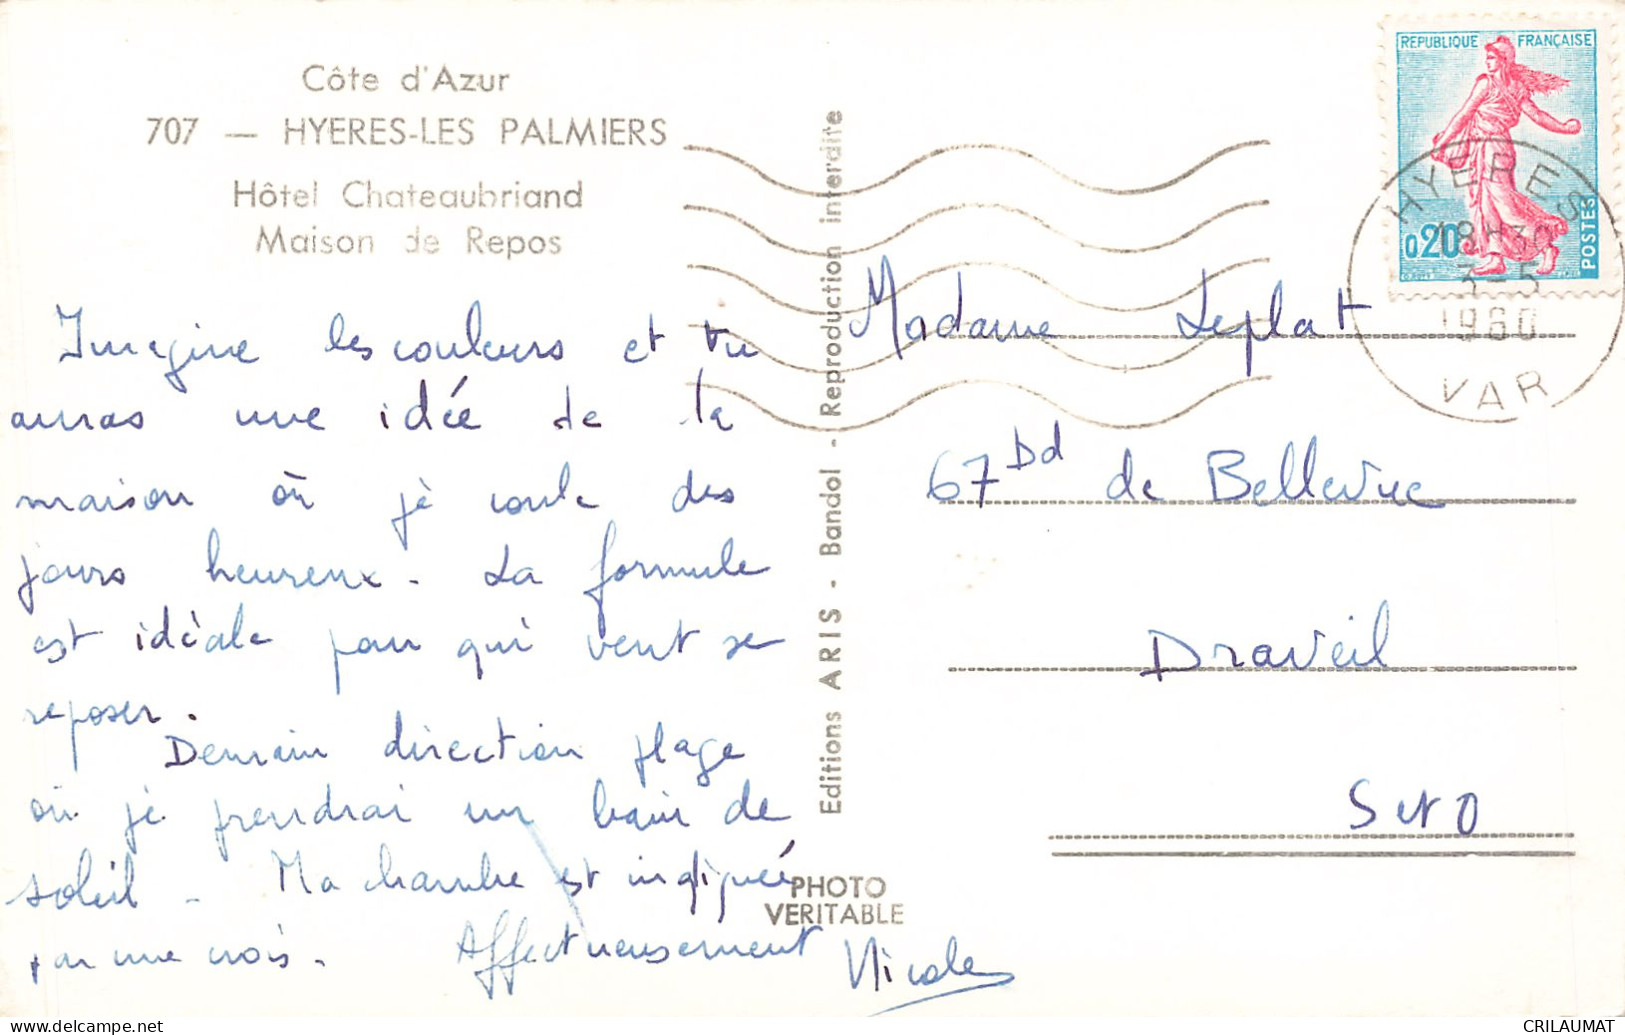 Côte d'Azur
707 — HYERES-LES PALMIERS
Hôtel Chateaubriand
Maison de Repos
Imagine les couleurs et tu
auras une idée de la
maison où je coule des
jours heureux. La formule
est idéale pour qui veut se
reposer.
Demain direction plage
où je prendrai un bain de
soleil - Ma chambre est indiquée
par une croix. Affectueusement
Nicole
Editions ARIS - Bandol - Reproduction interdite
PHOTO
VERITABLE
REPUBLIQUE FRANÇAISE
0,20
POSTES
HYÈRES
18H30
3-5
1960
VAR
Madame Leplat
67 Bd de Bellevue
Draveil
S et O
CRILAUMAT